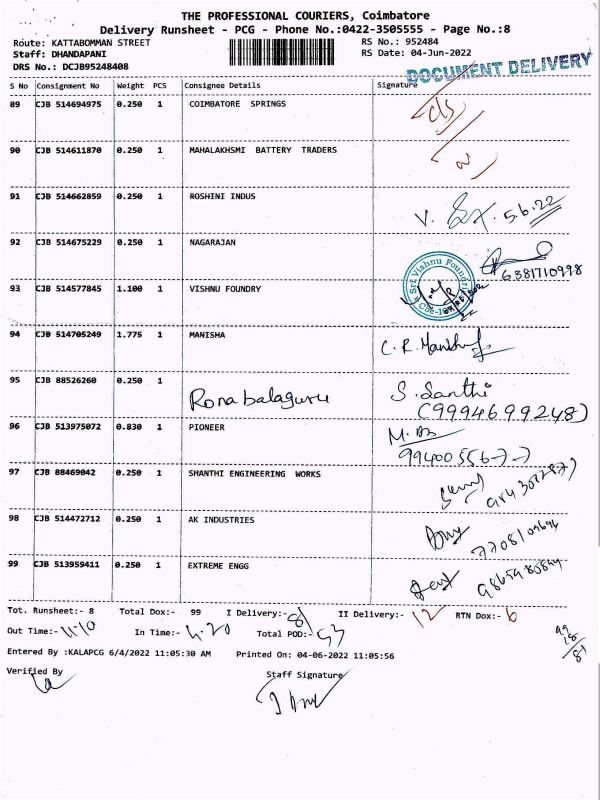 THE PROFESSIONAL COURIERS, Coimbatore
Delivery Runsheet - PCG - Phone No.:0422-3505555 - Page No.:8
Route: KATTABOMMAN STREET RS No.: 952484
Staff: DHANDAPANI RS Date: 04-Jun-2022
DRS No.: DCJB95248408
DOCUMENT DELIVERY
S No Consignment No Weight PCS Consignee Details Signature
89 CJB 514694975 0.250 1 COIMBATORE SPRINGS
90 CJB 514611870 0.250 1 MAHALAKHSMI BATTERY TRADERS
91 CJB 514662859 0.250 1 ROSHINI INDUS
V. 5.6.22
92 CJB 514675229 0.250 1 NAGARAJAN
6381710998
93 CJB 514577845 1.100 1 VISHNU FOUNDRY
Sri Vishnu Foundry
94 CJB 514705249 1.775 1 MANISHA
C. R. Manisha
95 CJB 88526260 0.250 1
Rona balaguru S. Santhi
(9994699248)
96 CJB 513975072 0.830 1 PIONEER
9940055677
97 CJB 88469042 0.250 1 SHANTHI ENGINEERING WORKS
98 CJB 514472712 0.250 1 AK INDUSTRIES
99 CJB 513959411 0.250 1 EXTREME ENGG
Tot. Runsheet:- 8 Total Dox:- 99 I Delivery:- 81 II Delivery:- 12 RTN Dox:- 6
Out Time:- 11.10 In Time:- 4.20 Total POD:- 53
Entered By :KALAPCG 6/4/2022 11:05:30 AM Printed On: 04-06-2022 11:05:56
Verified By Staff Signature